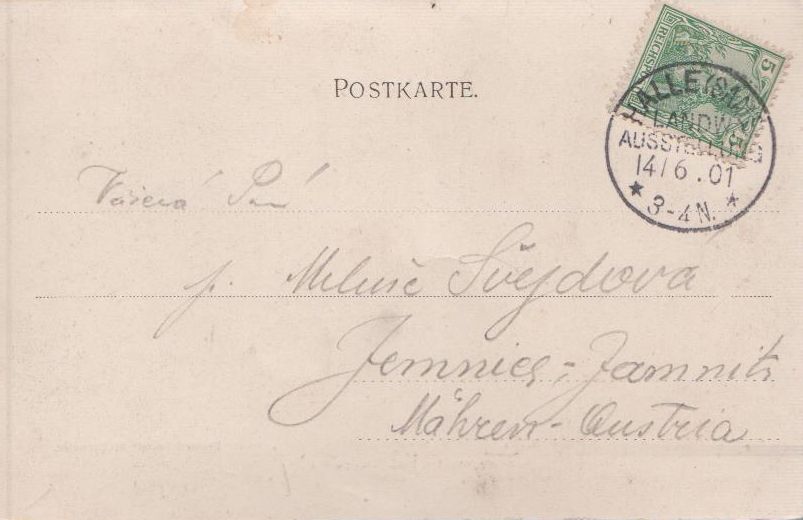 POSTKARTE.
REICHSPOST
5 5
HALLE (SAALE)
LANDW.
AUSSTELLUNG
14/6.01
3-4N.
Vážená Paní
p. Miluše Švejdova
Jemnice - Jamnitz
Mähren - Austria